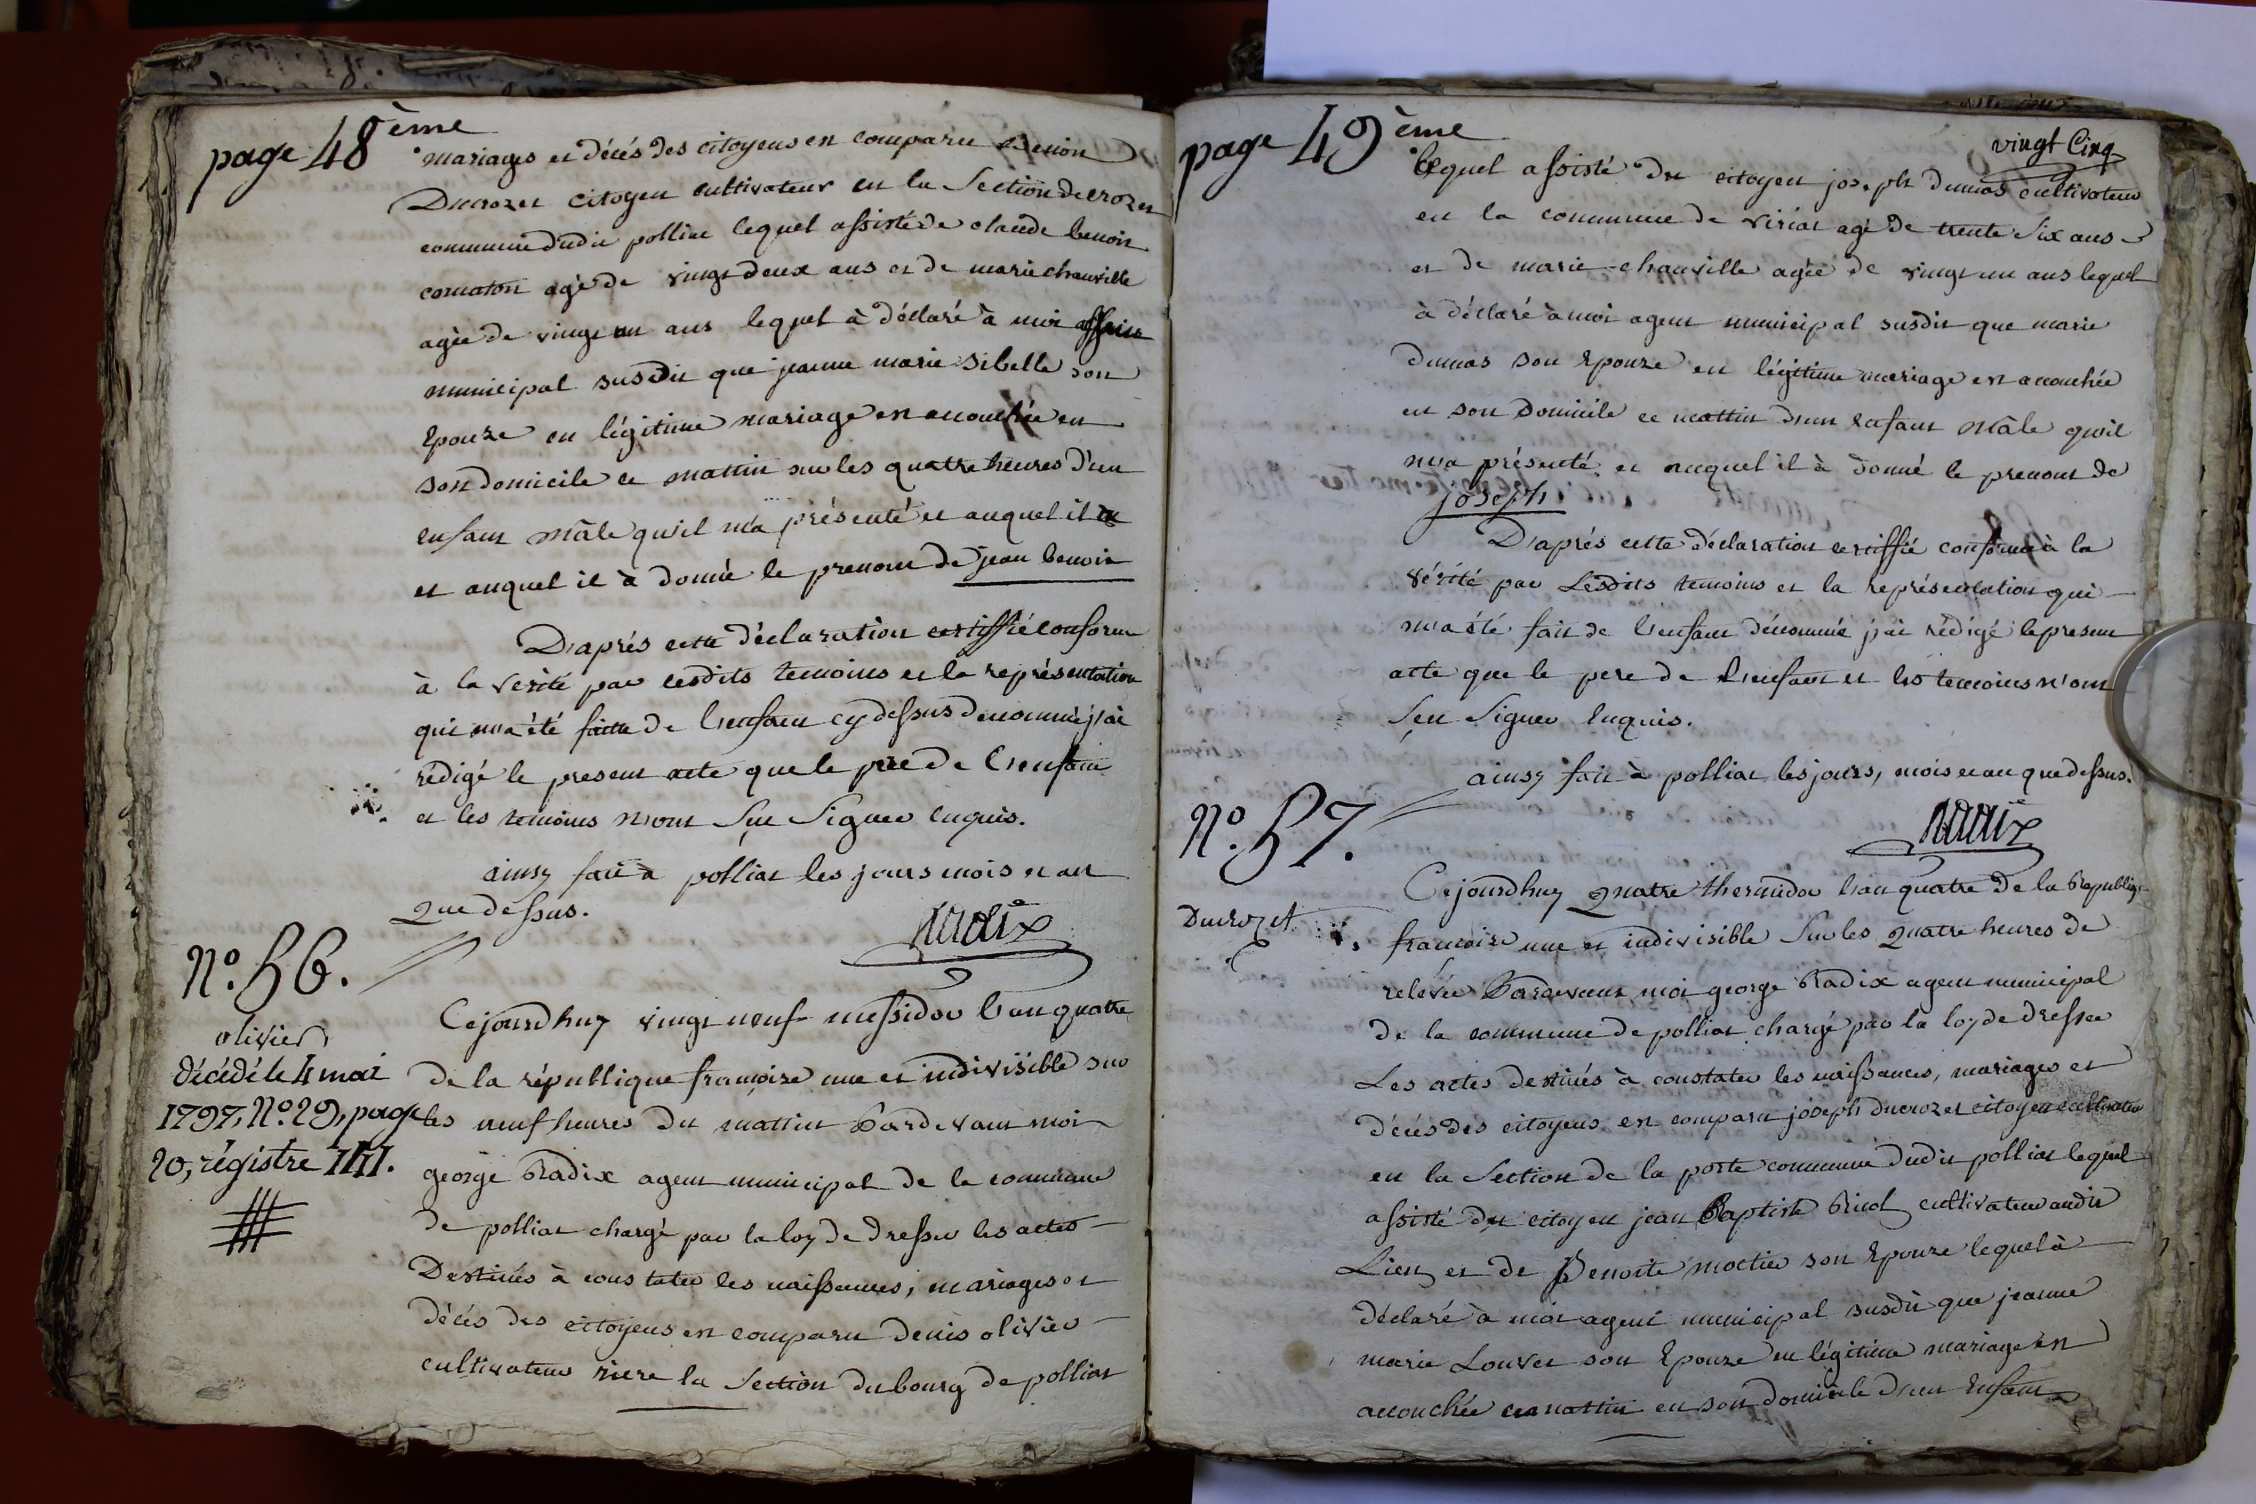 page 48ème
mariages et décés des citoyens en comparu Benoit
Ducrozet citoyen cultivateur en la Section de crozet
commune dudit polliat lequel assisté de claude benoit
cornaton agé de vingt deux ans et de marie chanville
agée de vingt un ans lequel à déclaré à moi
municipal susdit que jeanne marie sibelle son
Epouze en légitime mariage est accouchée en
son domicile ce mattin sur les quatre heures d'un
enfant mâle qu'il m'a présenté et auquel il a
et auquel il à donné le prenom de jean benoit
D'aprés cette déclaration certiffié conforme
à la verité par cesdits temoins et la représentation
qui m'a été faitte de l'enfant cy dessus denommé j'ai
rédigé le present acte que le pere de l'enfant
et les temoins n'ont Sçu Signer enquis.
ainsy fait à polliat les jours mois et an
que dessus.
Radix
No. 56.
olivier
décédé le 4 mai
1797, No. 29, page
20, régistre III.
Cejourdhuy vingt neuf messidor l'an quatre
de la république françoise une et indivisible sur
les neuf heures du mattin Pardevant moi
george Radix agent municipal de la commune
de polliat chargé par la loy de dresser les actes
Destinés à constater les naissances, mariages et
décés des citoyens est comparu denis olivier
cultivateur riere la Section du bourg de polliat
page 49ème
vingt Cinq
lequel assisté du citoyen joseph dumas cultivateur
en la commune de viriat agé de trente Six ans
et de marie chanville agée de vingt un ans lequel
à déclaré à moi agent municipal susdit que marie
dumas son Epouze en légitime mariage est accouchée
en son domicile ce mattin d'un enfant mâle qu'il
m'a présenté et auquel il à donné le prenom de
joseph
D'aprés cette déclaration certiffié conforme à la
vérité par Lesdits temoins et la représentation qui
m'a été fait de l'enfant dénommé j'ai rédigé le present
acte que le pere de l'enfant et les temoins n'ont
Sçu Signer Enquis.
ainsy fait à polliat les jours, mois et an que dessus.
Radix
No. 57.
Ducrozet
Cejourdhuy quatre thermidor l'an quatre de la Republique
françoise une et indivisible Sur les quatre heures de
relevée Pardevant moi george Radix agent municipal
de la commune de polliat chargé par la loy de dresser
Les actes destinés à constater les naissances, mariages et
décés des citoyens est comparu joseph ducrozet citoyen cultivateur
en la Section de la poste commune dudit polliat lequel
assisté du citoyen jean Baptiste cultivateur audit
Lieu et de Benoite moctier son Epouze lequel à
déclaré à moi agent municipal susdit que jeanne
marie Louvet son Epouze en légitime mariage est
accouchée ce mattin en son domicile d'un Enfant